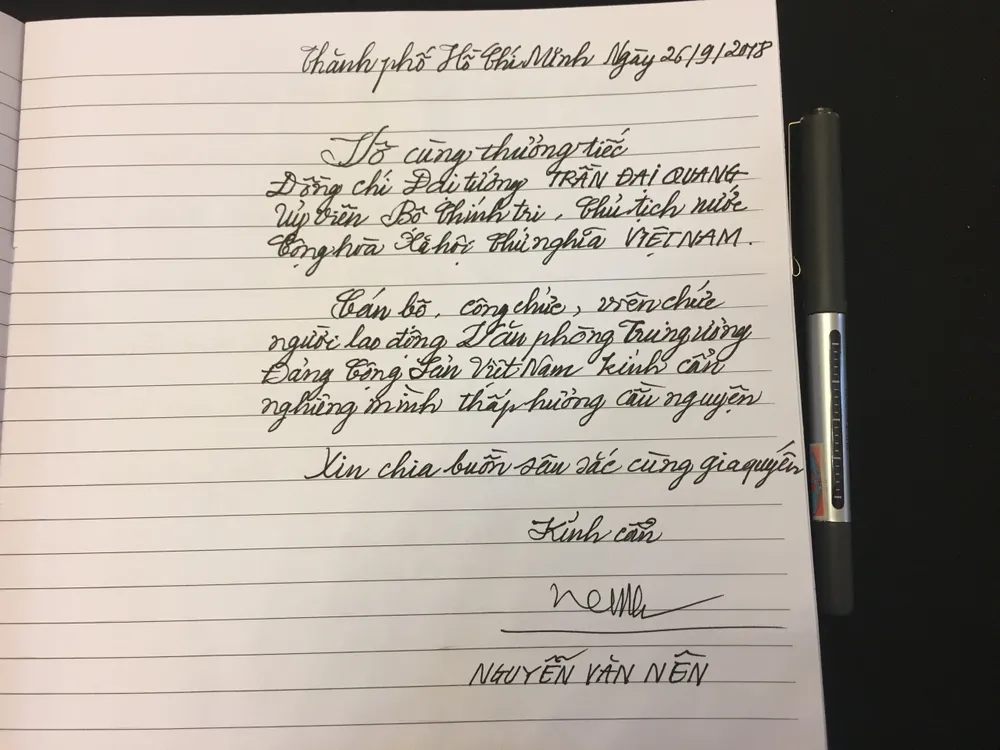 Thành phố Hồ Chí Minh Ngày 26/9/2018
Vô cùng thương tiếc
Đồng chí Đại tướng TRẦN ĐẠI QUANG
Uỷ viên Bộ Chính trị, Chủ tịch nước
Cộng hoà Xã hội Chủ nghĩa VIỆT NAM.
Cán bộ, công chức, viên chức
người lao động Văn phòng Trung ương
Đảng Cộng Sản Việt Nam kính cẩn
nghiêng mình thắp hương cầu nguyện
Xin chia buồn sâu sắc cùng gia quyến
Kính cẩn
NGUYỄN VĂN NÊN